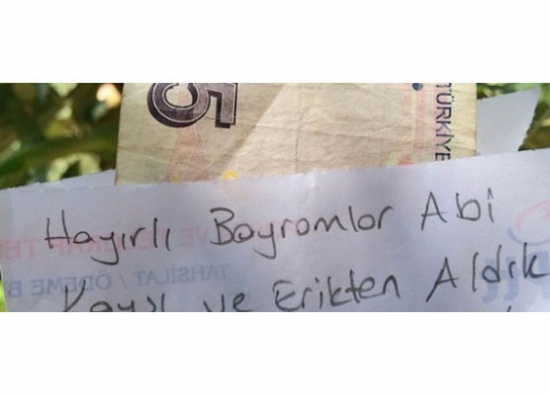 5
TÜRKİYE
Hayırlı Bayramlar Abi
TAHSİLAT / ÖDEME B
Kayısı ve Erikten Aldık